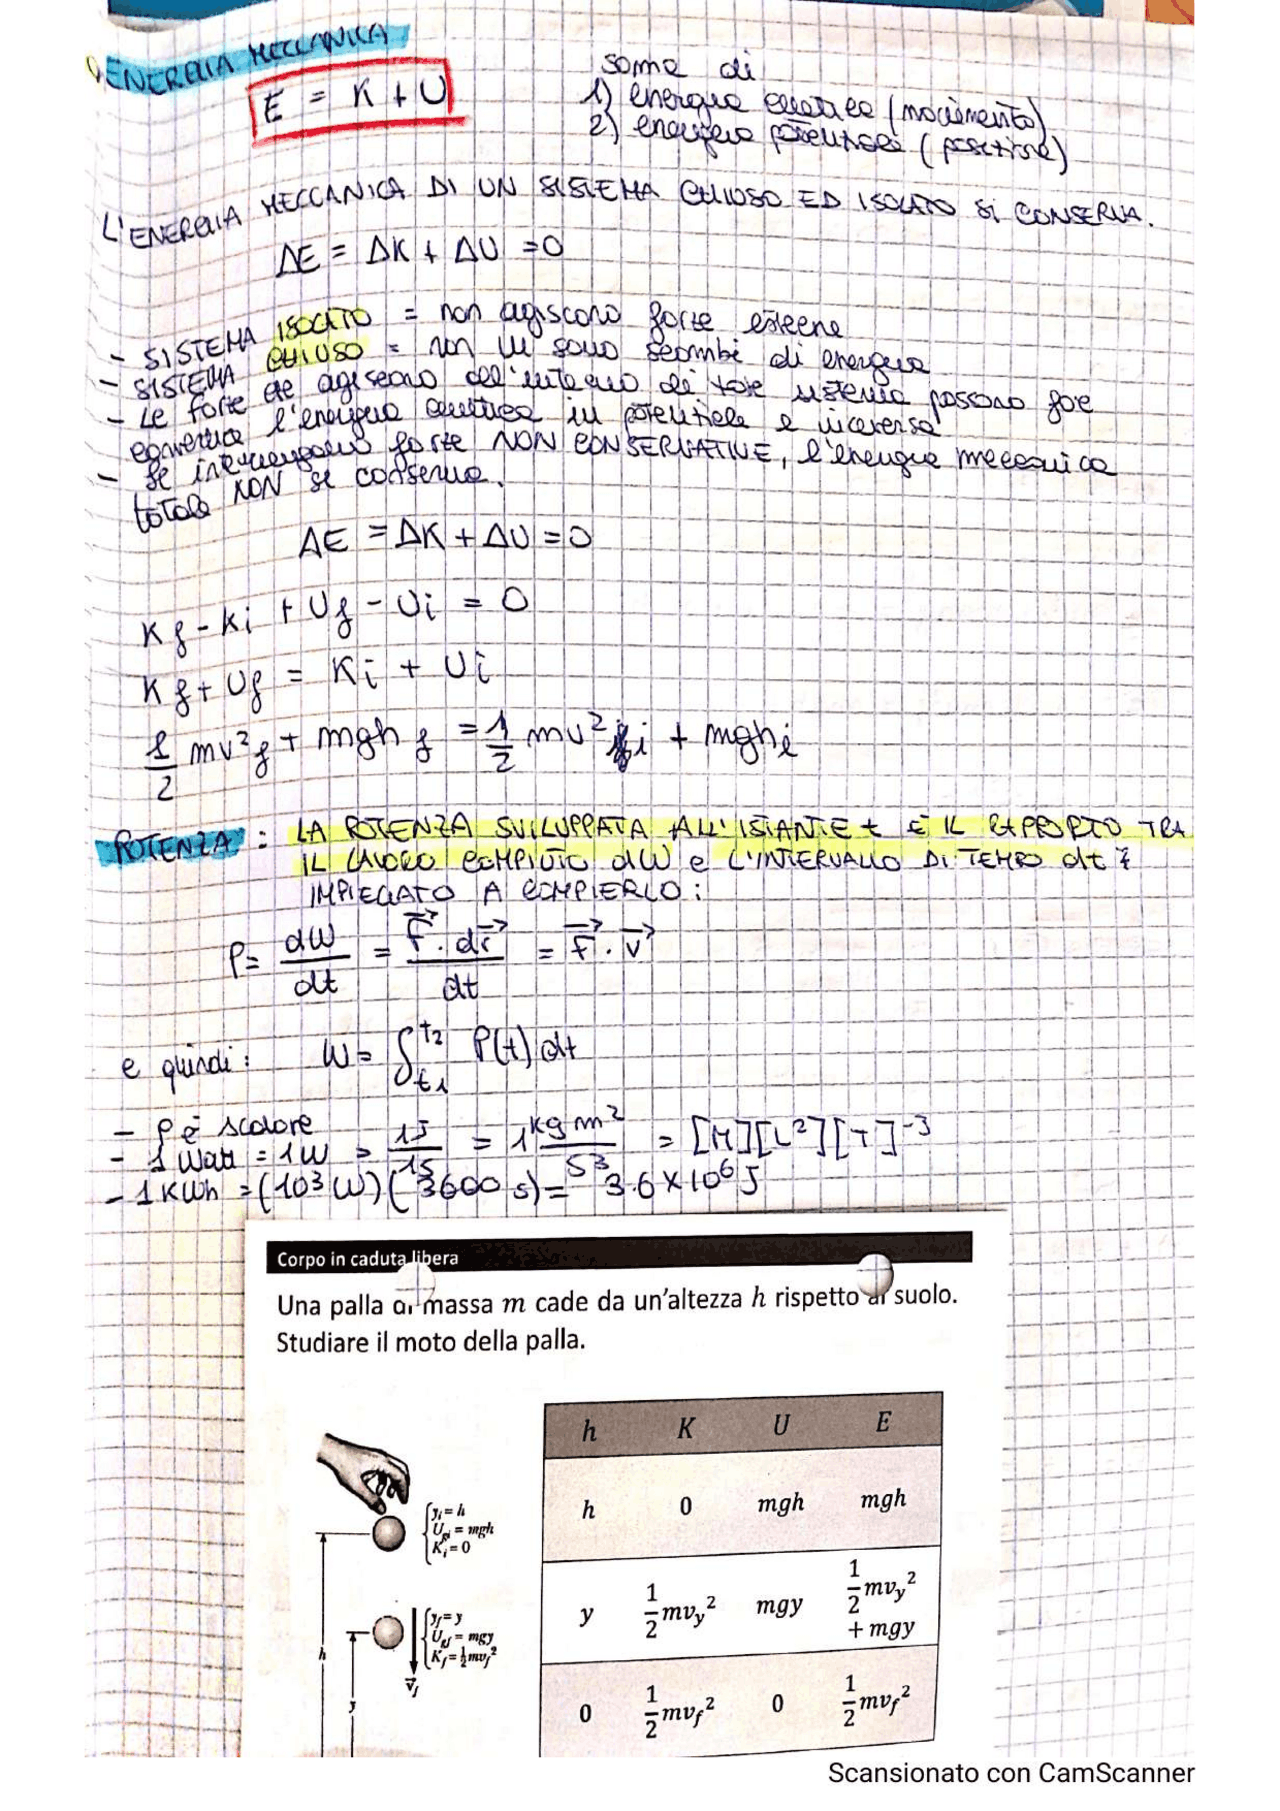 ENERGIA MECCANICA
E = K + U
somma di
1) energia cinetica (movimento)
2) energia potenziale (posizione)
L'ENERGIA MECCANICA DI UN SISTEMA CHIUSO ED ISOLATO SI CONSERVA.
ΔE = ΔK + ΔU = 0
- SISTEMA ISOLATO = non agiscono forze esterne
- SISTEMA CHIUSO = non vi sono scambi di energia
- Le forze che agiscono all'interno di tale sistema possono fare
convertire l'energia cinetica in potenziale e viceversa
- Se intervengono forze NON CONSERVATIVE, l'energia meccanica
totale NON si conserva.
ΔE = ΔK + ΔU = 0
Kf - Ki + Uf - Ui = 0
Kf + Uf = Ki + Ui
1/2 mv²f + mghf = 1/2 mv²i + mghi
POTENZA: LA POTENZA SVILUPPATA ALL'ISTANTE t È IL RAPPORTO TRA
IL LAVORO COMPIUTO dW e L'INTERVALLO DI TEMPO dt
IMPIEGATO A COMPIERLO:
P = dW/dt = F⃗ · dr⃗/dt = F⃗ · v⃗
e quindi: W = ∫t1^t2 P(t) dt
- P è scalare
- 1 Watt = 1W = 1J/1s = 1 kg m²/s³ = [M][L²][T]⁻³
- 1 KWh = (10³ W)(3600 s) = 3.6 × 10⁶ J
Corpo in caduta libera
Una palla di massa m cade da un'altezza h rispetto al suolo.
Studiare il moto della palla.
h K U E
h 0 mgh mgh
y 1/2 mv_y² mgy 1/2 mv_y² + mgy
0 1/2 mv_f² 0 1/2 mv_f²
y_i = h
U_gi = mgh
K_i = 0
y_f = y
U_gf = mgy
K_f = 1/2 mv_f²
h
y
v⃗_f
Scansionato con CamScanner